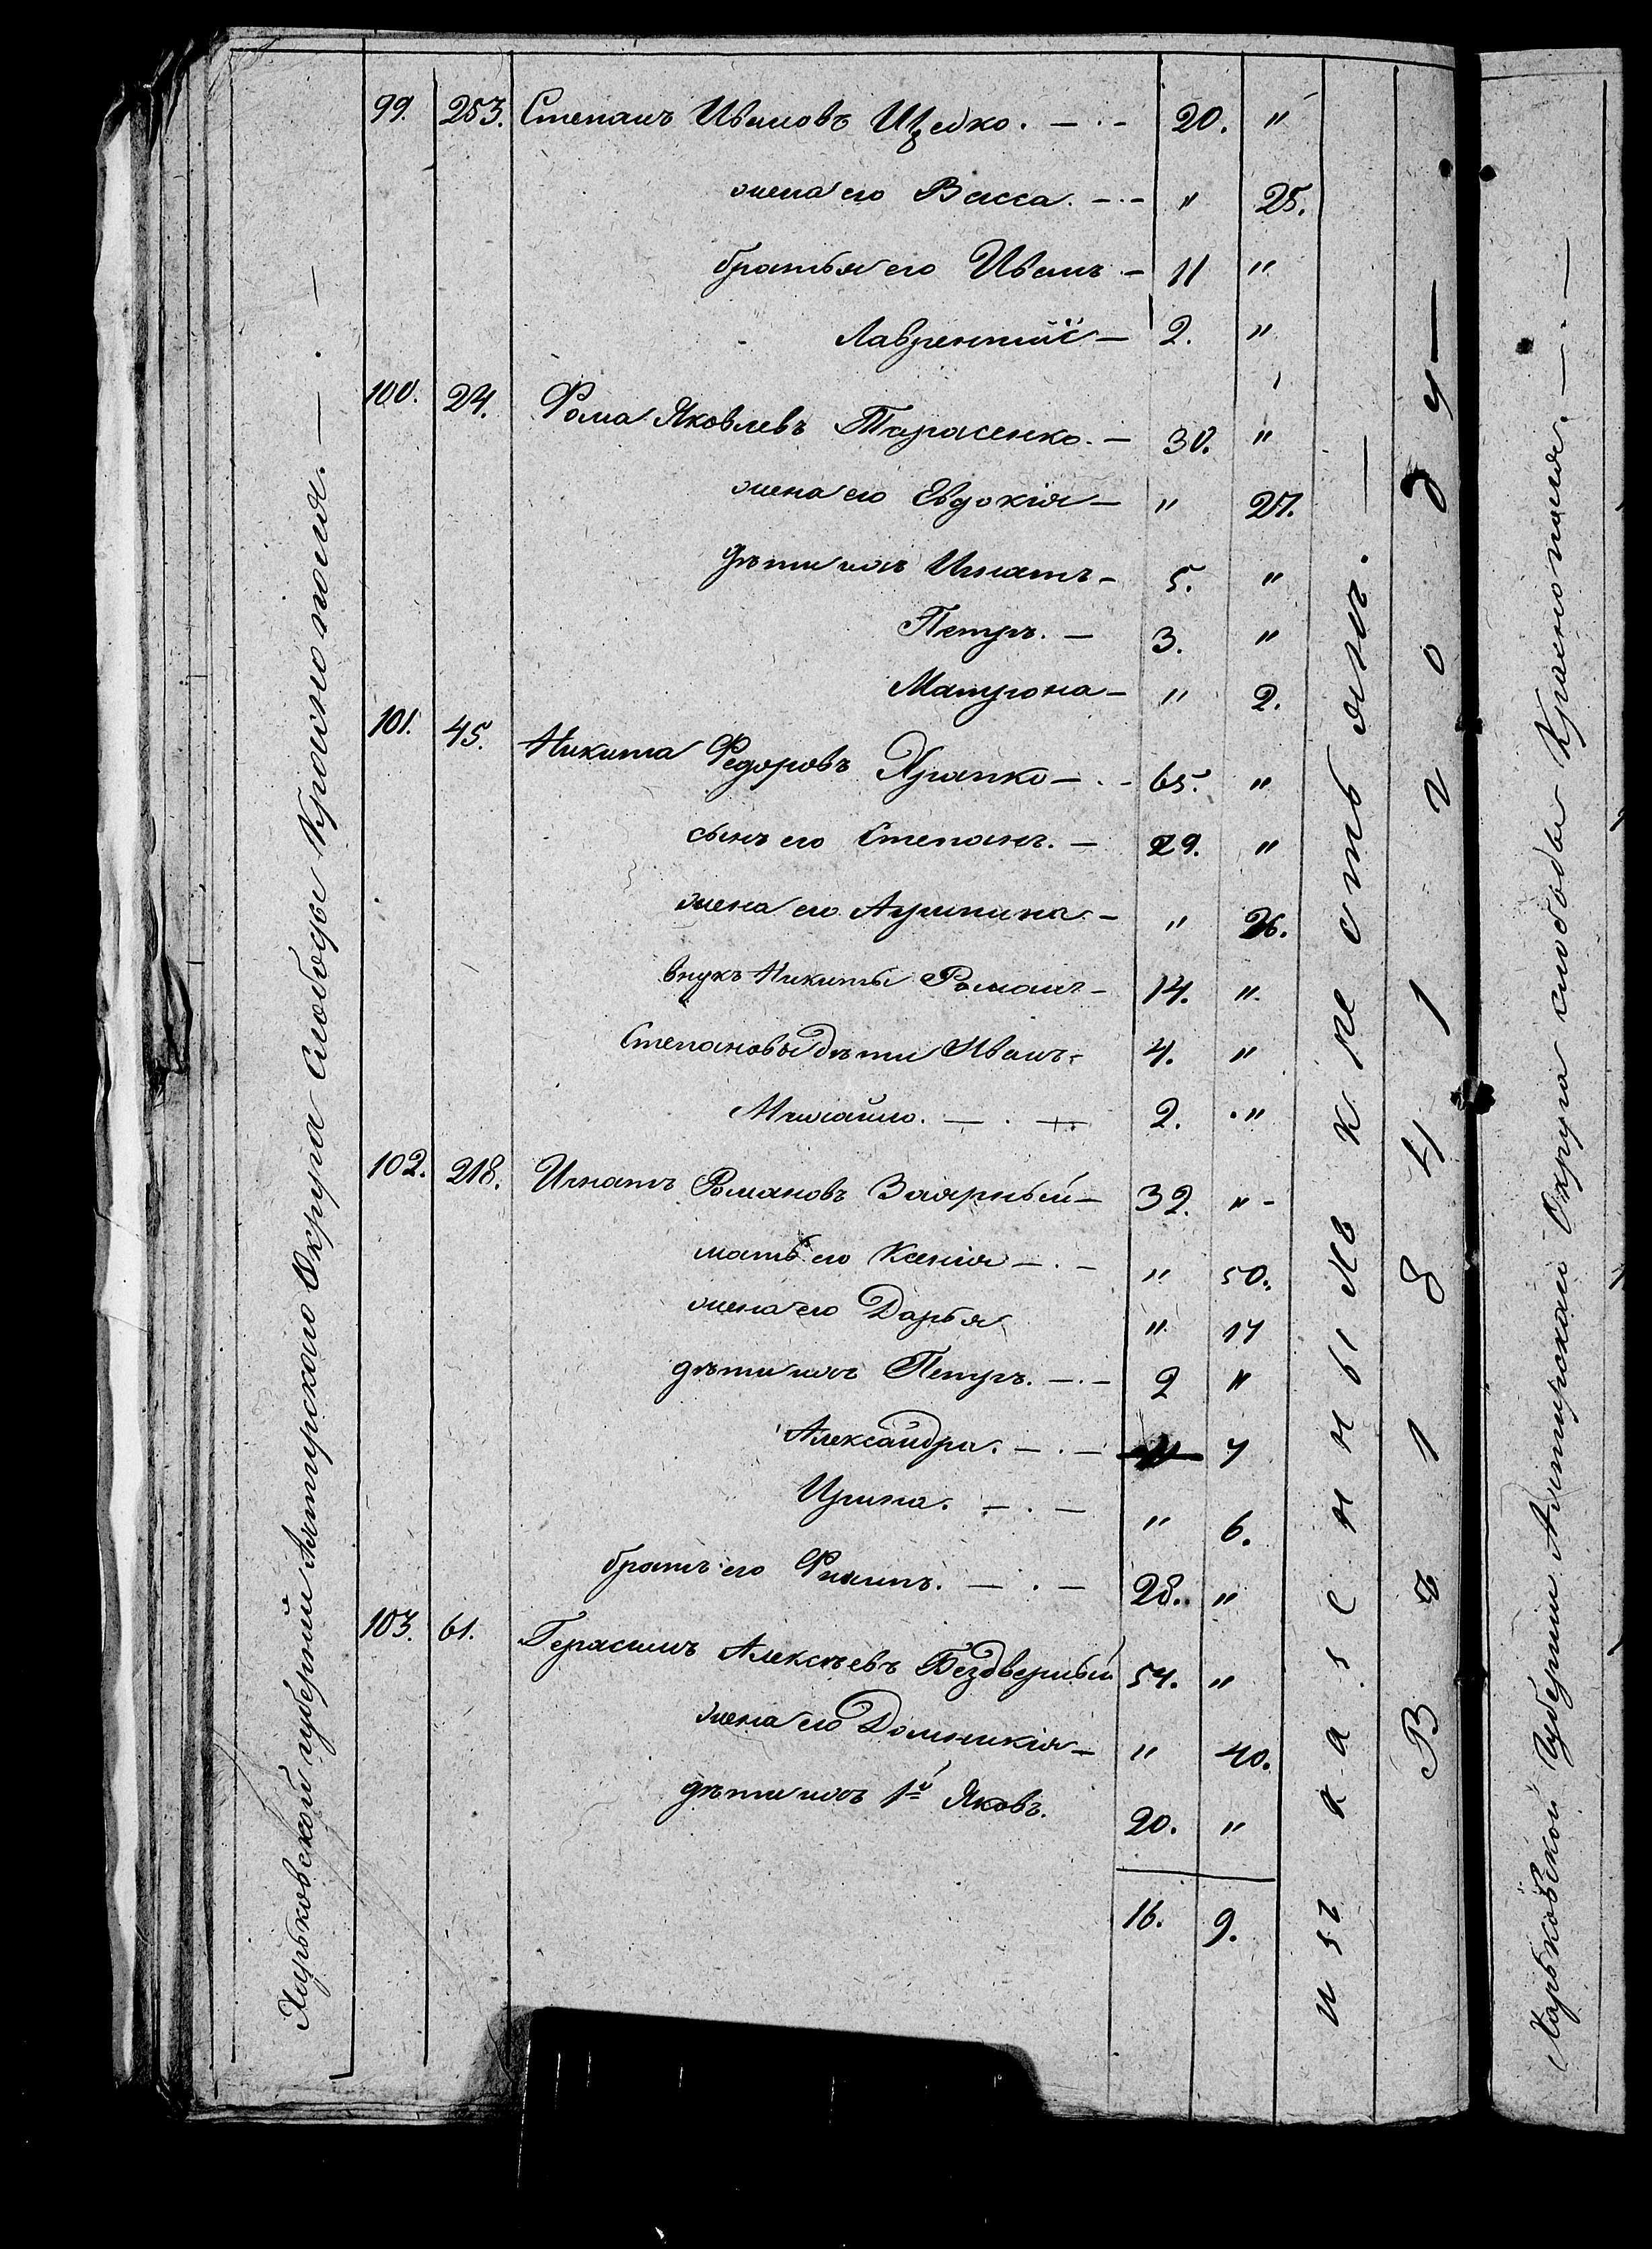 Харьковской губерніи Ахтырского Округа слободы Краснополья. —
99. 253. Степанъ Ивановъ Шейко. — 20. "
жена его Васса. — " 25.
братья его Иванъ — 11 "
Лаврентій — 2. "
100. 24. Фома Яковлевъ Тарасенко. — 30. "
жена его Евдокія — " 27.
дѣти ихъ Игнатъ — 5. "
Петръ. — 3. "
Матрона — " 2.
101. 45. Никита Федоровъ Храпко — 65. "
сынъ его Степанъ. — 29. "
жена его — " 26.
внукъ Никиты Романъ — 14. "
Степановы дѣти Иванъ — 4. "
Михайло. — 2. "
102. 218. Игнатъ Романовъ Заярный — 32. "
мать его Ксенія — " 50.
жена его Дарья " 17
дѣти ихъ Петръ. — 2 "
Александра. — " 7
Ирина. — " 6.
братъ его Филипъ. — 28. "
103. 61. Герасимъ Алексѣевъ Бездверный 54. "
жена его Домникія — " 40.
дѣти ихъ 1й Яковъ. 20. "
16. 9.
Харьковской Губерніи Ахтырского Округа слободы Краснополья. —